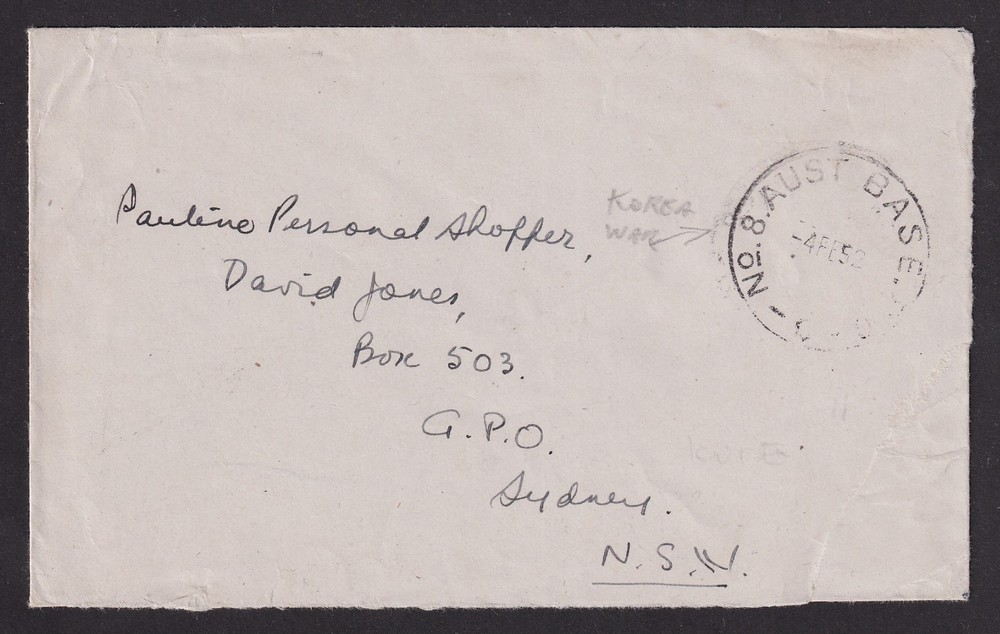 Pauline Personal Shopper,
David Jones,
Box 503.
G.P.O.
Sydney.
N.S.W.
KOREA
WAR
No. 8. AUST BASE
-4FE52